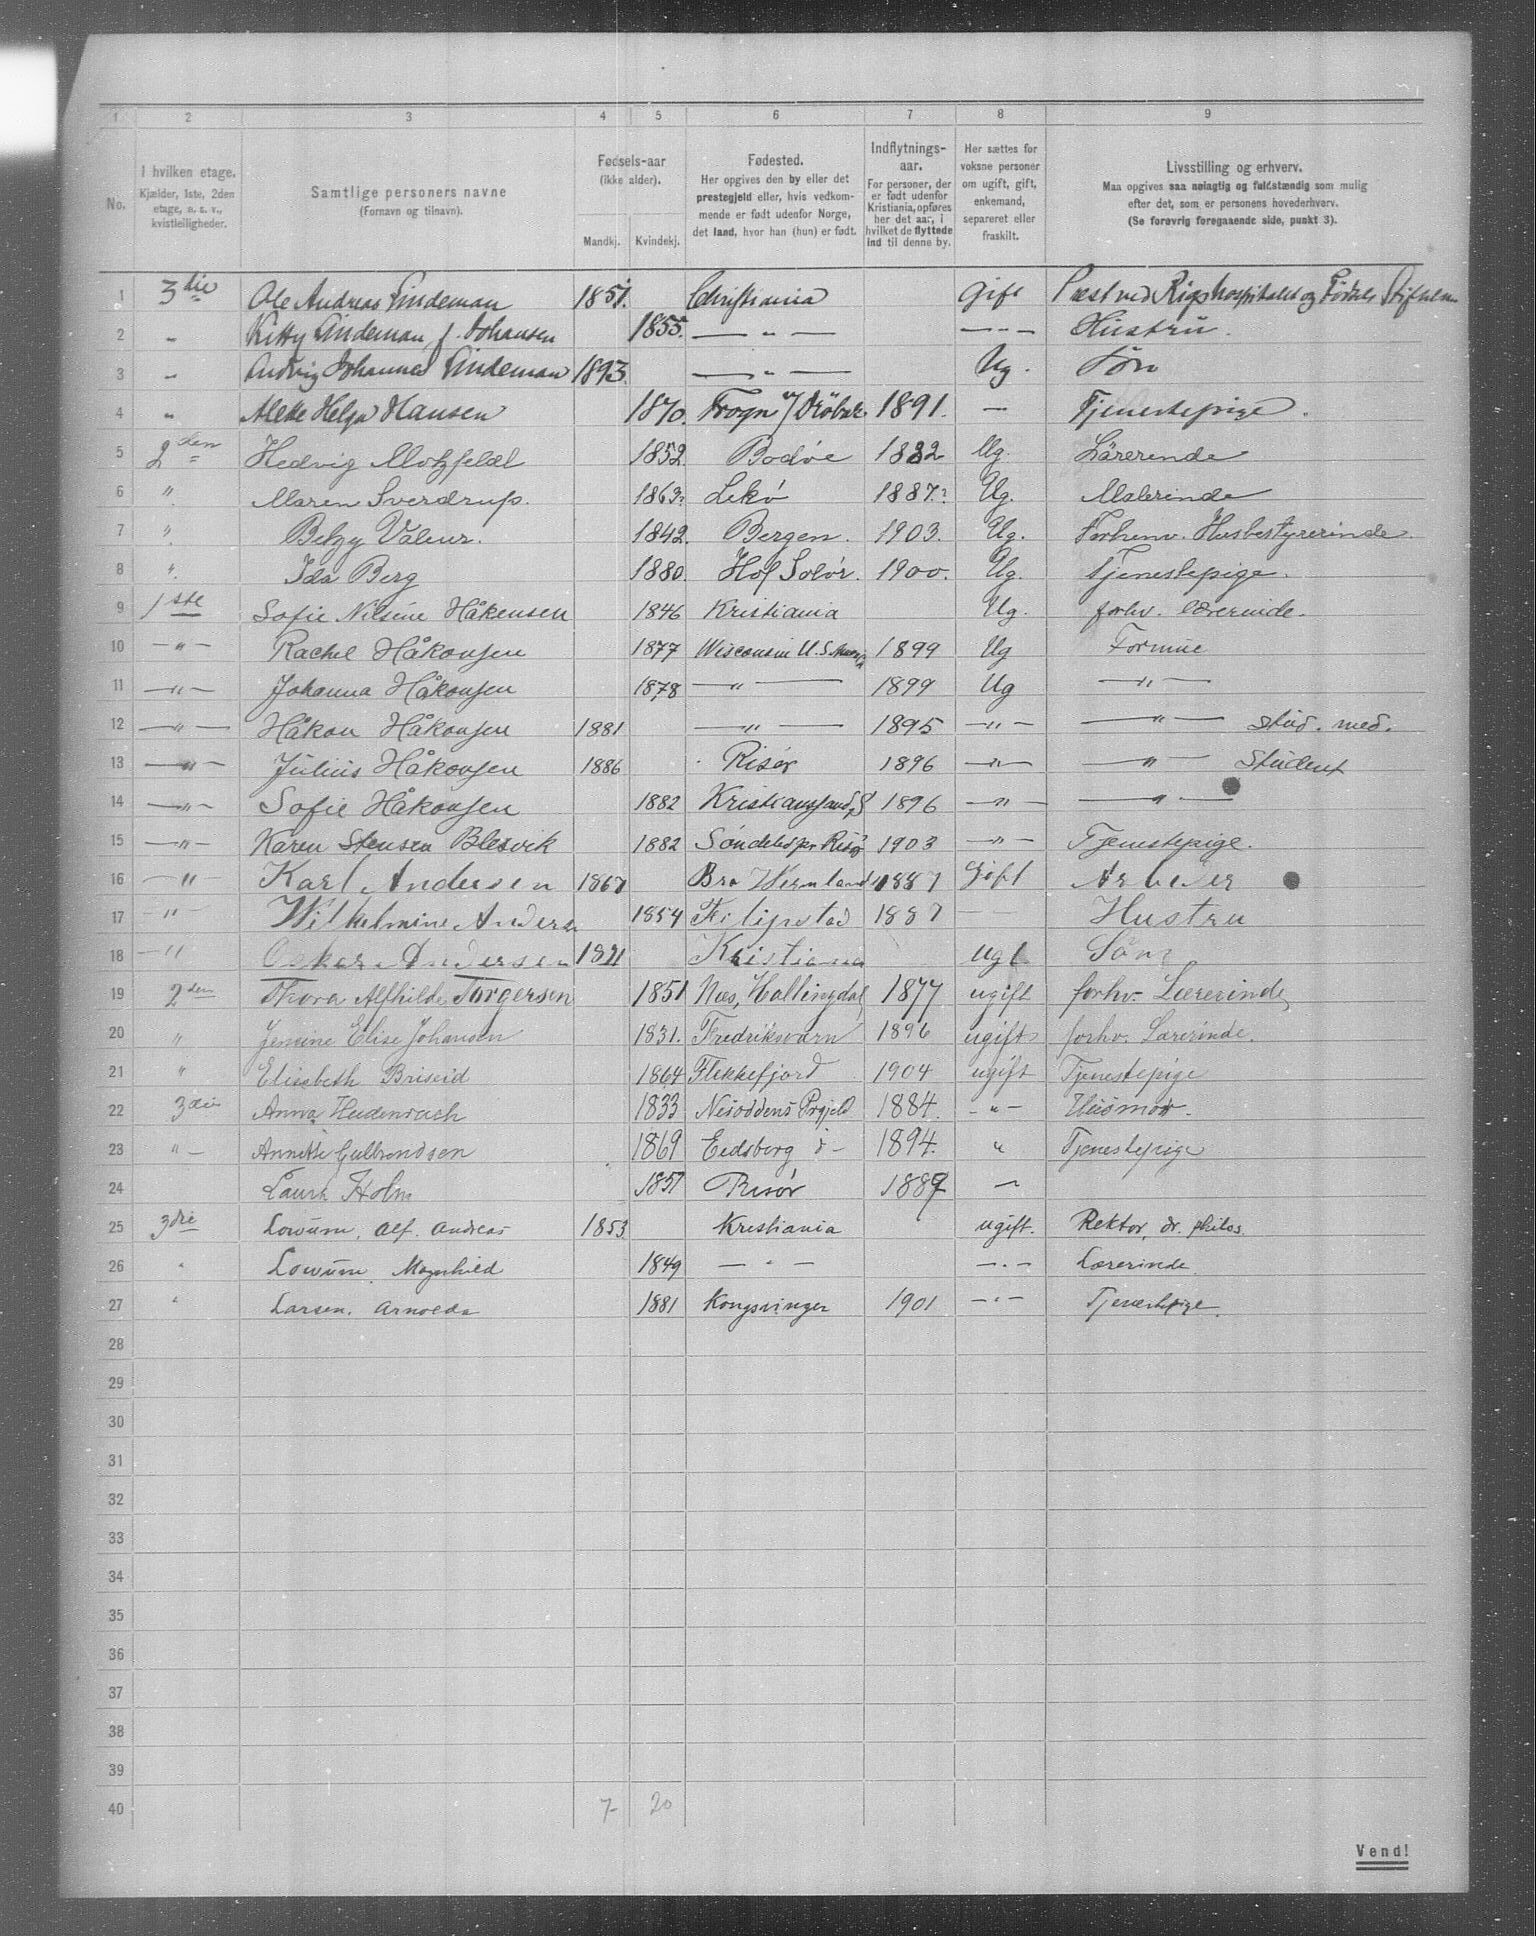 1 2 3 4 5 6 7 8 9
No.
I hvilken etage.
Kjælder, 1ste, 2den
etage, o. s. v.,
kvistleiligheder.
Samtlige personers navne
(Fornavn og tilnavn).
Fødsels-aar
(ikke alder).
Mandkj. Kvindekj.
Fødested.
Her opgives den by eller det
prestegjeld eller, hvis vedkom-
mende er født udenfor Norge,
det land, hvor han (hun) er født.
Indflytnings-
aar.
For personer, der
er født udenfor
Kristiania, opføres
her det aar, i
hvilket de flyttede
ind til denne by.
Her sættes for
voksne personer
om ugift, gift,
enkemand,
separeret eller
fraskilt.
Livsstilling og erhverv.
Maa opgives saa nøiagtig og fuldstændig som mulig
efter det, som er personens hovederhverv.
(Se forøvrig foregaaende side, punkt 3).
1 3die Ole Andreas Lindeman 1851. Christiania Gift Præst ved Rigshospitalet og Fødsels Stiftelsen
2 " Kitty Lindeman f. Johansen 1855. — " — — " — Hustru.
3 " Ludvig Johannes Lindeman 1893. — " — Ug. Søn
4 " Alette Helga Hansen 1870. Frogn v/ Drøbak. 1891. — Tjenestepige.
5 2den Hedvig Motzfeldt 1852 Bodøe 1882 Ug. Lärerinde
6 " Maren Sverdrup. 1863? Lekø 1887? Ug. Malerinde
7 " Betzy Valeur. 1842. Bergen. 1903. Ug. Forhenv. Husbestyrerinde.
8 " Ida Berg 1880. Hof Solør. 1900. Ug. Tjenestepige.
9 1ste Sofie Nilsine Håkensen 1846 Kristiania Ug. forhv. lærerinde.
10 — " — Rachel Håkonsen 1877 Wisconsin U.S. 1899 Ug Formue
11 — " — Johanna Håkonsen 1878 — " — 1899 Ug — " —
12 — " — Håkon Håkonsen 1881 — " — 1895 — " — — " — stud. med.
13 — " — Julius Håkonsen 1886 Risør 1896 — " — — " — Student
14 — " — Sofie Håkonsen 1882 Kristianssand S 1896 — " — — " —
15 — " — Karen Stensen Blesvik 1882 Søndeled pr Risør 1903 — " — Tjenestepige.
16 — " — Karl Andersen 1867 Bro Wermland 1887 Gift Arbeder
17 — " — Wilhelmine Anders 1854 Filipstad 1887 — — Hustru
18 — " Oskar Andersen 1891 Kristiania ugt Søn
19 2den Thora Alfhilde Torgersen 1851 Næs, Hallingdal 1877 ugift forhv. Lærerinde
20 " Jensine Elise Johansen 1831. Fredriksværn 1896 ugift forhv. Lærerinde.
21 " Elisabeth Briseid 1864 Flekkefjord 1904 ugift Tjenestepige
22 3die Anna Heidenreich 1833 Nesoddens Prgjeld 1884. — " — Husmor.
23 " — Annette Gulbrandsen 1869 Eidsberg d— 1894. " Tjenestepige
24 Laura Holm 1857 Risør 1889 "
25 3die Lowum, Alf. Andreas 1853 Kristiania ugift. Rektor, dr. philos.
26 " Lowum, Magnhild 1849 — " — — " — Lærerinde.
27 " Larsen, Arnolda 1881 Kongsvinger 1901 — " — Tjenestepige.
28
29
30
31
32
33
34
35
36
37
38
39
40 7 20
Vend!